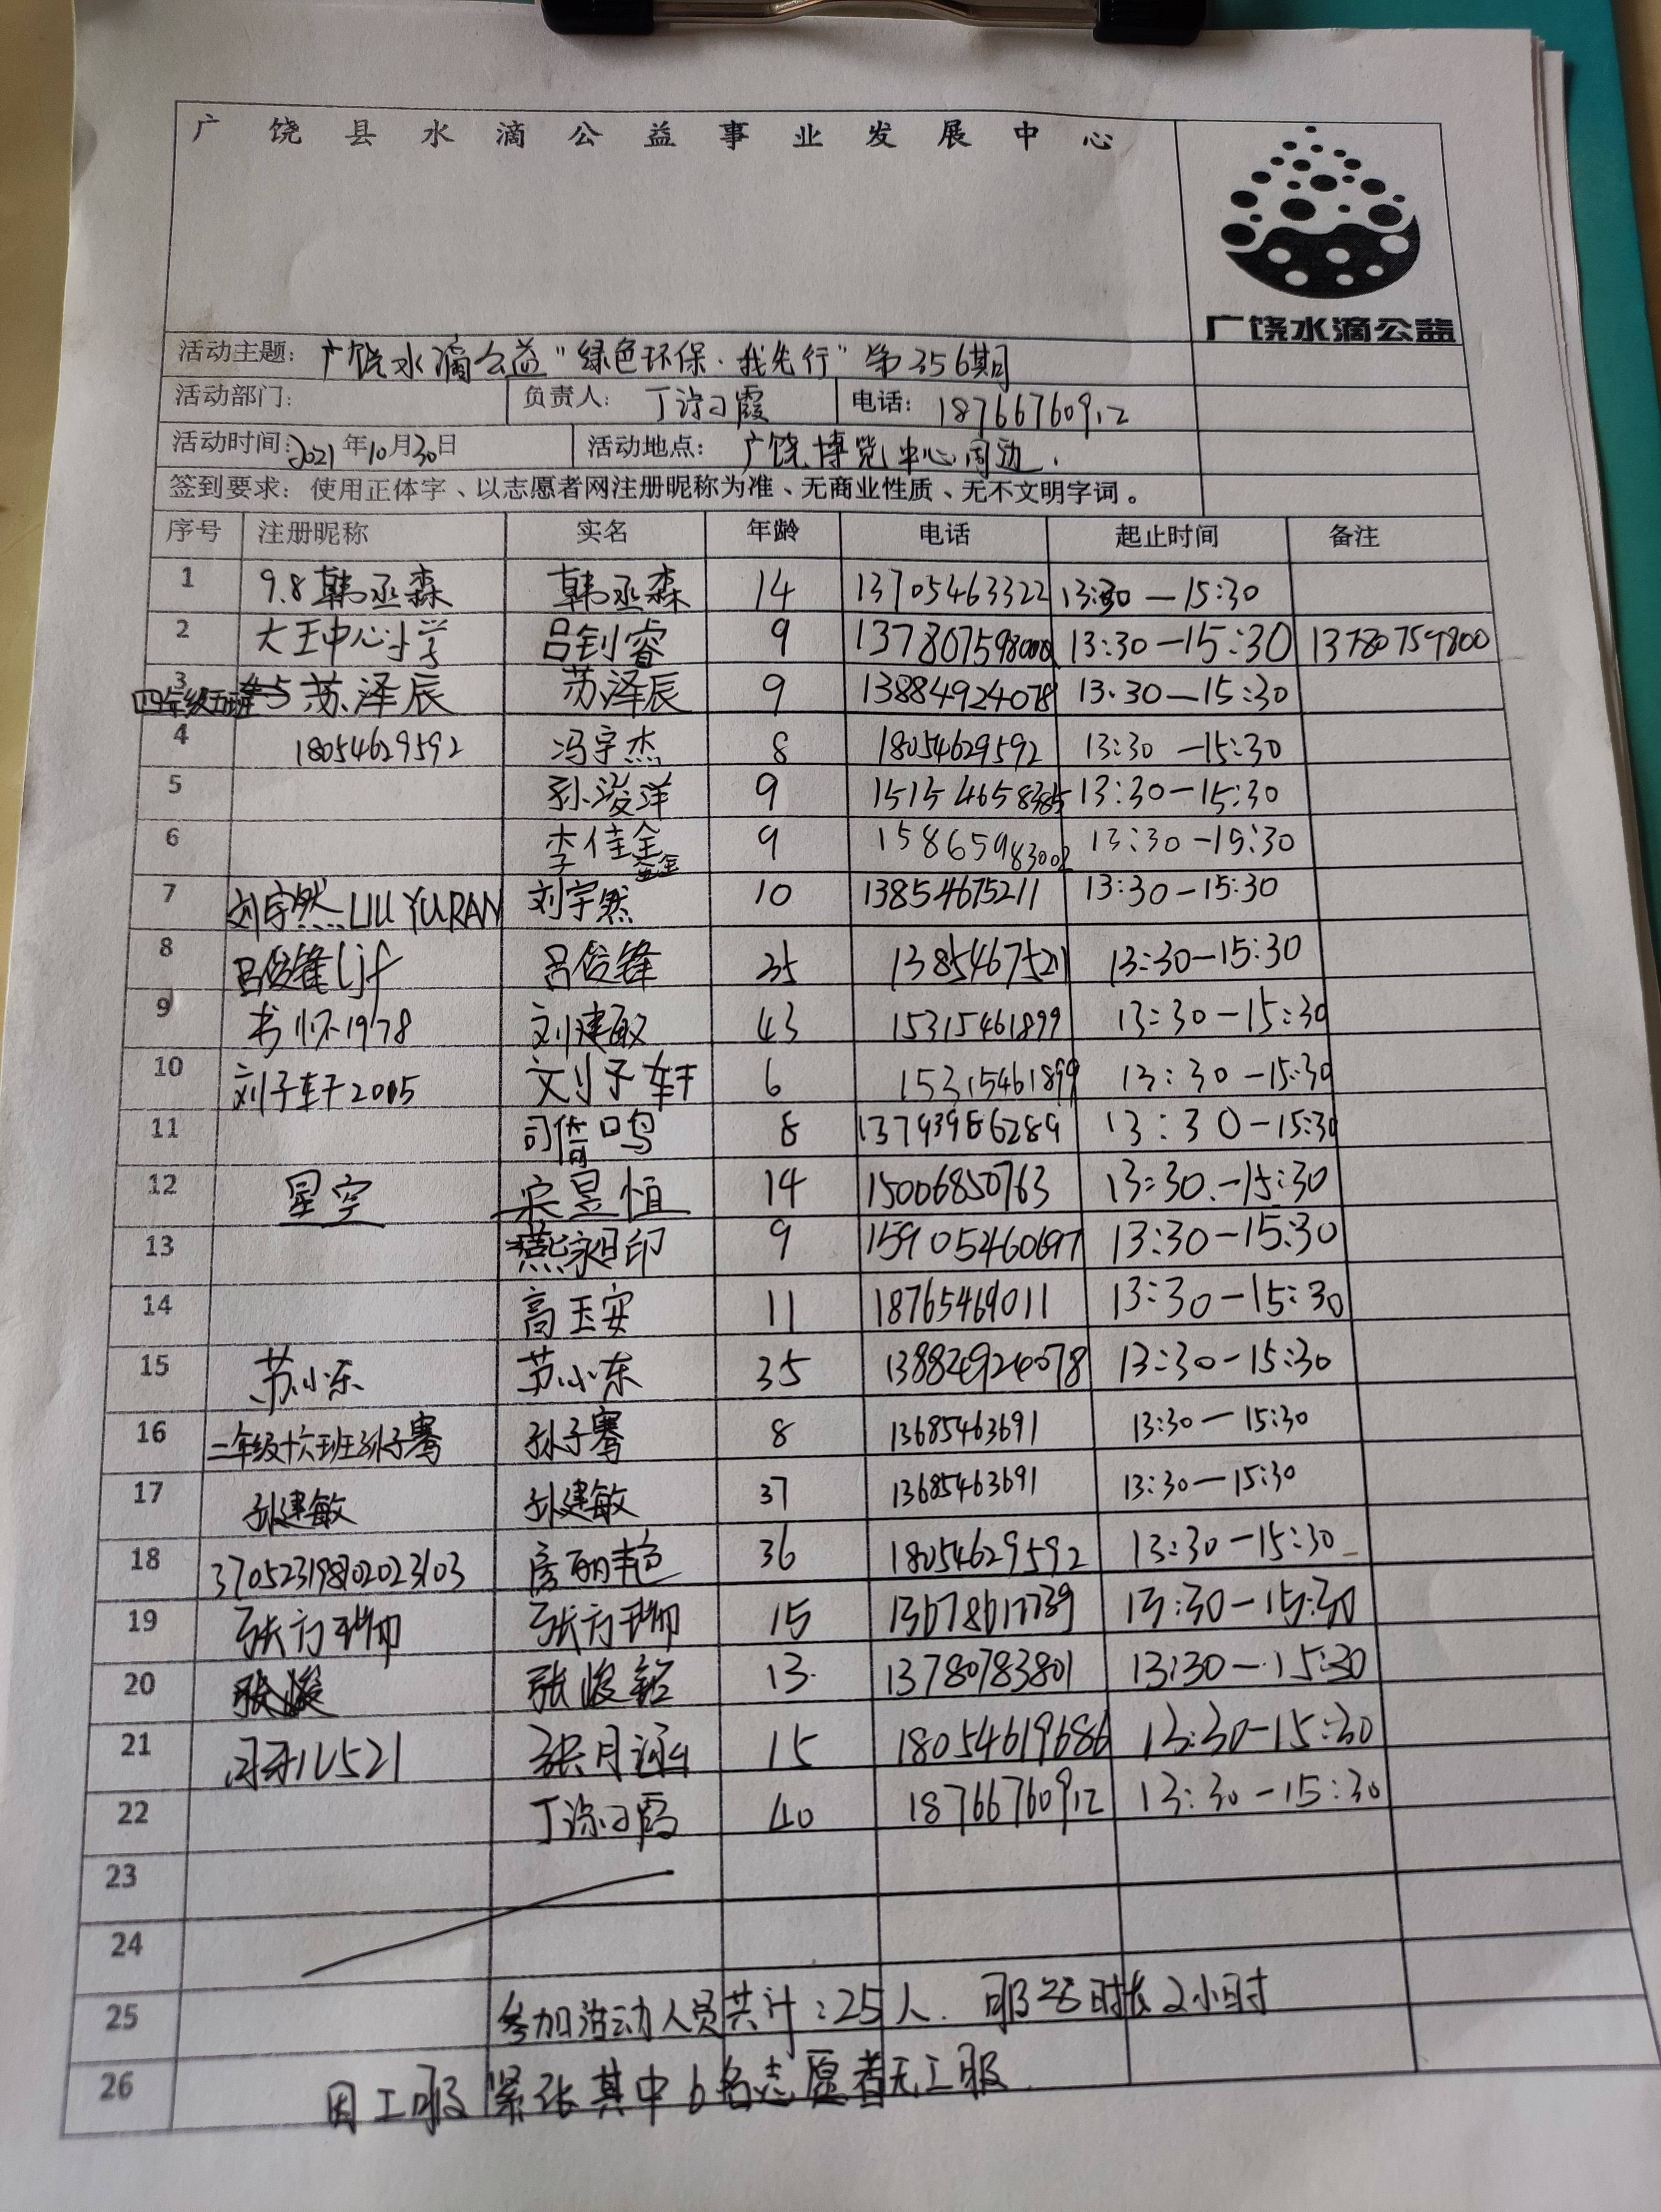 广饶县水滴公益事业发展中心
广饶水滴公益
活动主题：广饶水滴公益"绿色环保·我先行"第356期
活动部门： 负责人：丁 霞 电话：18766760912
活动时间：2021年10月30日 活动地点：广饶博览中心周边.
签到要求：使用正体字、以志愿者网注册昵称为准、无商业性质、无不文明字词。
序号 注册昵称 实名 年龄 电话 起止时间 备注
1 9.8韩丞森 韩丞森 14 13705463322 13:30—15:30
2 大王中心小学 吕钊睿 9 13:30—15:30 13780759800
3 四年级五班 苏泽辰 苏泽辰 9 13884924078 13:30—15:30
4 18054629592 冯宇杰 8 18054629592 13:30—15:30
5 孙浚洋 9 13:30—15:30
6 李佳鑫 9 15865983002 13:30—15:30
7 刘宇然LIU YURAN 刘宇然 10 13854675211 13:30—15:30
8 吕俊锋ljf 吕俊锋 35 13854675211 13:30—15:30
9 书怀1978 刘建敏 43 15315461899 13:30—15:30
10 刘子轩2015 刘子轩 6 15315461899 13:30—15:30
11 司 鸣 8 13:30—15:30
12 星空 宋昱恒 14 15006850763 13:30—15:30
13 燕 印 9 159052460697 13:30—15:30
14 高玉安 11 18765469011 13:30—15:30
15 苏小东 苏小东 35 13:30—15:30
16 二年级十六班孙子骞 孙子骞 8 13685463691 13:30—15:30
17 孙建敏 孙建敏 37 13685463691 13:30—15:30
18 房丽艳 36 18054629592 13:30—15:30
19 张方瑞 张方瑞 15 13:30—15:30
20 张峻 张峻铭 13 13780783801 13:30—15:30
21 张月涵 15 18054619686 13:30—15:30
22 丁 霞 40 18766760912 13:30—15:30
23
24
25 参加活动人员共计：25人. 服务时长2小时
26 因工服紧张其中6名志愿者无工服